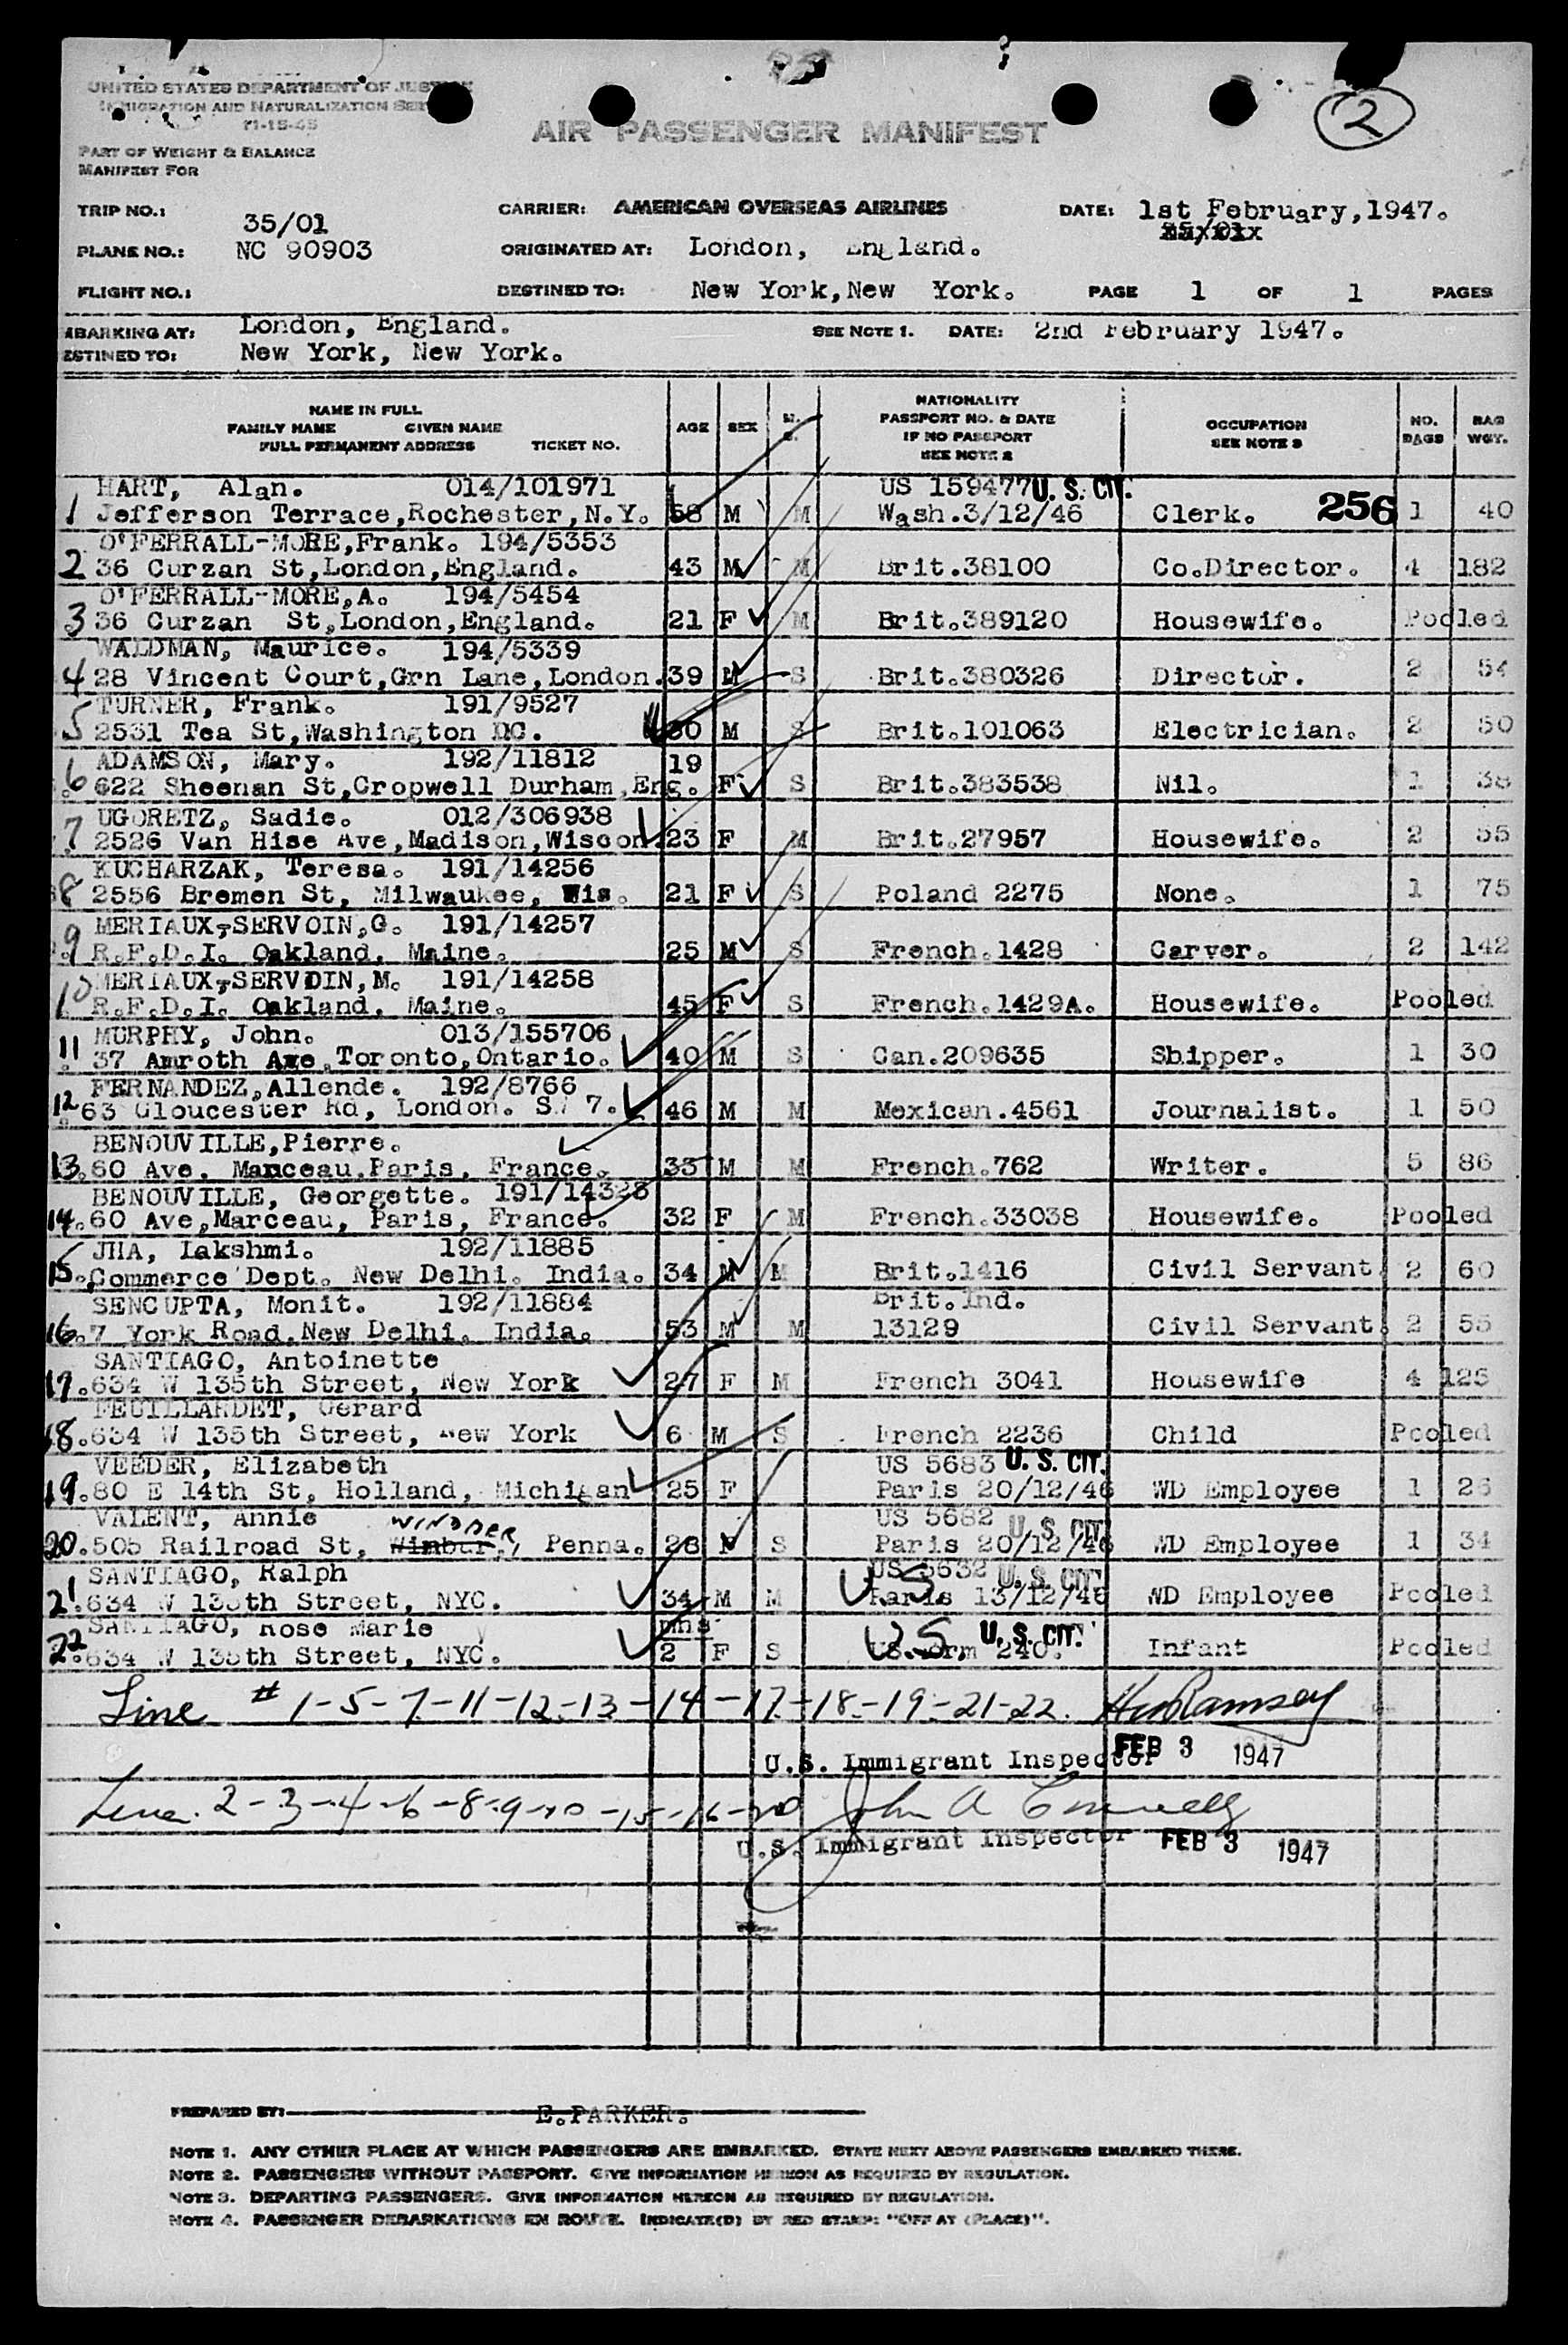 UNITED STATES DEPARTMENT OF JUSTICE
IMMIGRATION AND NATURALIZATION SER
11-15-45
2
AIR PASSENGER MANIFEST
PART OF WEIGHT & BALANCE
MANIFEST FOR
TRIP NO.: 35/01 CARRIER: AMERICAN OVERSEAS AIRLINES DATE: 1st February, 1947.
PLANE NO.: NC 90903 ORIGINATED AT: London, England.
FLIGHT NO.: DESTINED TO: New York, New York. PAGE 1 OF 1 PAGES
MBARKING AT: London, England. SEE NOTE 1. DATE: 2nd February 1947.
ESTINED TO: New York, New York.
NAME IN FULL
FAMILY NAME GIVEN NAME
FULL PERMANENT ADDRESS TICKET NO. AGE SEX M. S. NATIONALITY PASSPORT NO. & DATE IF NO PASSPORT SEE NOTE 2 OCCUPATION SEE NOTE 3 NO. BAGS BAG WGT.
HART, Alan. 014/101971 US 159477 U. S. CIT.
1 Jefferson Terrace, Rochester, N.Y. 58 M M Wash. 3/12/46 Clerk. 256 1 40
O'FERRALL-MORE, Frank. 194/5353
2 36 Curzan St, London, England. 43 M M Brit. 38100 Co. Director. 4 182
O'FERRALL-MORE, A. 194/5454
3 36 Curzan St, London, England. 21 F M Brit. 389120 Housewife. Pooled
WALDMAN, Maurice. 194/5339
4 28 Vincent Court, Grn Lane, London. 39 M S Brit. 380326 Director. 2 54
TURNER, Frank. 191/9527
5 2531 Tea St, Washington DC. 30 M S Brit. 101063 Electrician. 2 50
ADAMSON, Mary. 192/11812 19
6 622 Sheenan St, Cropwell Durham, Eng. F S Brit. 383538 Nil. 1 38
UGORETZ, Sadie. 012/306938
7 2526 Van Hise Ave, Madison, Wiscon. 23 F M Brit. 27957 Housewife. 2 55
KUCHARZAK, Teresa. 191/14256
8 2556 Bremen St, Milwaukee, Wis. 21 F S Poland 2275 None. 1 75
MERIAUX-SERVOIN, G. 191/14257
9 R.F.D.I. Oakland, Maine. 25 M S French. 1428 Carver. 2 142
MERIAUX-SERVOIN, M. 191/14258
10 R.F.D.I. Oakland, Maine. 45 F S French. 1429A. Housewife. Pooled
MURPHY, John. 013/155706
11 37 Amroth Ave, Toronto, Ontario. 40 M S Can. 209635 Shipper. 1 30
FERNANDEZ, Allende. 192/8766
12 63 Gloucester Rd, London. SW 7. 46 M M Mexican. 4561 Journalist. 1 50
BENOUVILLE, Pierre.
13. 60 Ave. Marceau, Paris, France. 33 M M French. 762 Writer. 5 86
BENOUVILLE, Georgette. 191/14323
14. 60 Ave, Marceau, Paris, France. 32 F M French. 33038 Housewife. Pooled
JHA, Lakshmi. 192/11885
15. Commerce Dept. New Delhi. India. 34 M M Brit. 1416 Civil Servant 2 60
SENCUPTA, Monit. 192/11884 Brit. Ind.
16. 7 York Road, New Delhi. India. 53 M M 13129 Civil Servant. 2 55
SANTIAGO, Antoinette
17. 634 W 135th Street, New York 27 F M French 3041 Housewife 4 125
FEUILLARDET, Gerard
18. 634 W 135th Street, New York 6 M S French 2236 Child Pooled
VEEDER, Elizabeth US 5683 U. S. CIT.
19. 80 E 14th St, Holland, Michigan 25 F Paris 20/12/46 WD Employee 1 26
VALENT, Annie WINDBER US 5682 U. S. CIT.
20. 505 Railroad St, Winbur, Penna. 28 S Paris 20/12/46 WD Employee 1 34
SANTIAGO, Ralph US 5632 U. S. CIT.
21. 634 W 135th Street, NYC. 34 M M US Paris 13/12/46 WD Employee Pooled
SANTIAGO, Rose Marie mns U. S. CIT.
22. 634 W 135th Street, NYC. 2 F S US US Form 240. Infant Pooled
Line # 1-5-7-11-12-13-14-17-18-19-21-22. Ramsey
U.S. Immigrant Inspector FEB 3 1947
Line. 2-3-4-6-8-9-10-15-16-20 John A
U.S. Immigrant Inspector FEB 3 1947
PREPARED BY: E. PARKER.
NOTE 1. ANY OTHER PLACE AT WHICH PASSENGERS ARE EMBARKED. STATE NEXT ABOVE PASSENGERS EMBARKED THERE.
NOTE 2. PASSENGERS WITHOUT PASSPORT. GIVE INFORMATION HEREON AS REQUIRED BY REGULATION.
NOTE 3. DEPARTING PASSENGERS. GIVE INFORMATION HEREON AS REQUIRED BY REGULATION.
NOTE 4. PASSENGER DEBARKATIONS EN ROUTE. INDICATE(D) BY RED STAMP: "OFF AT (PLACE)".